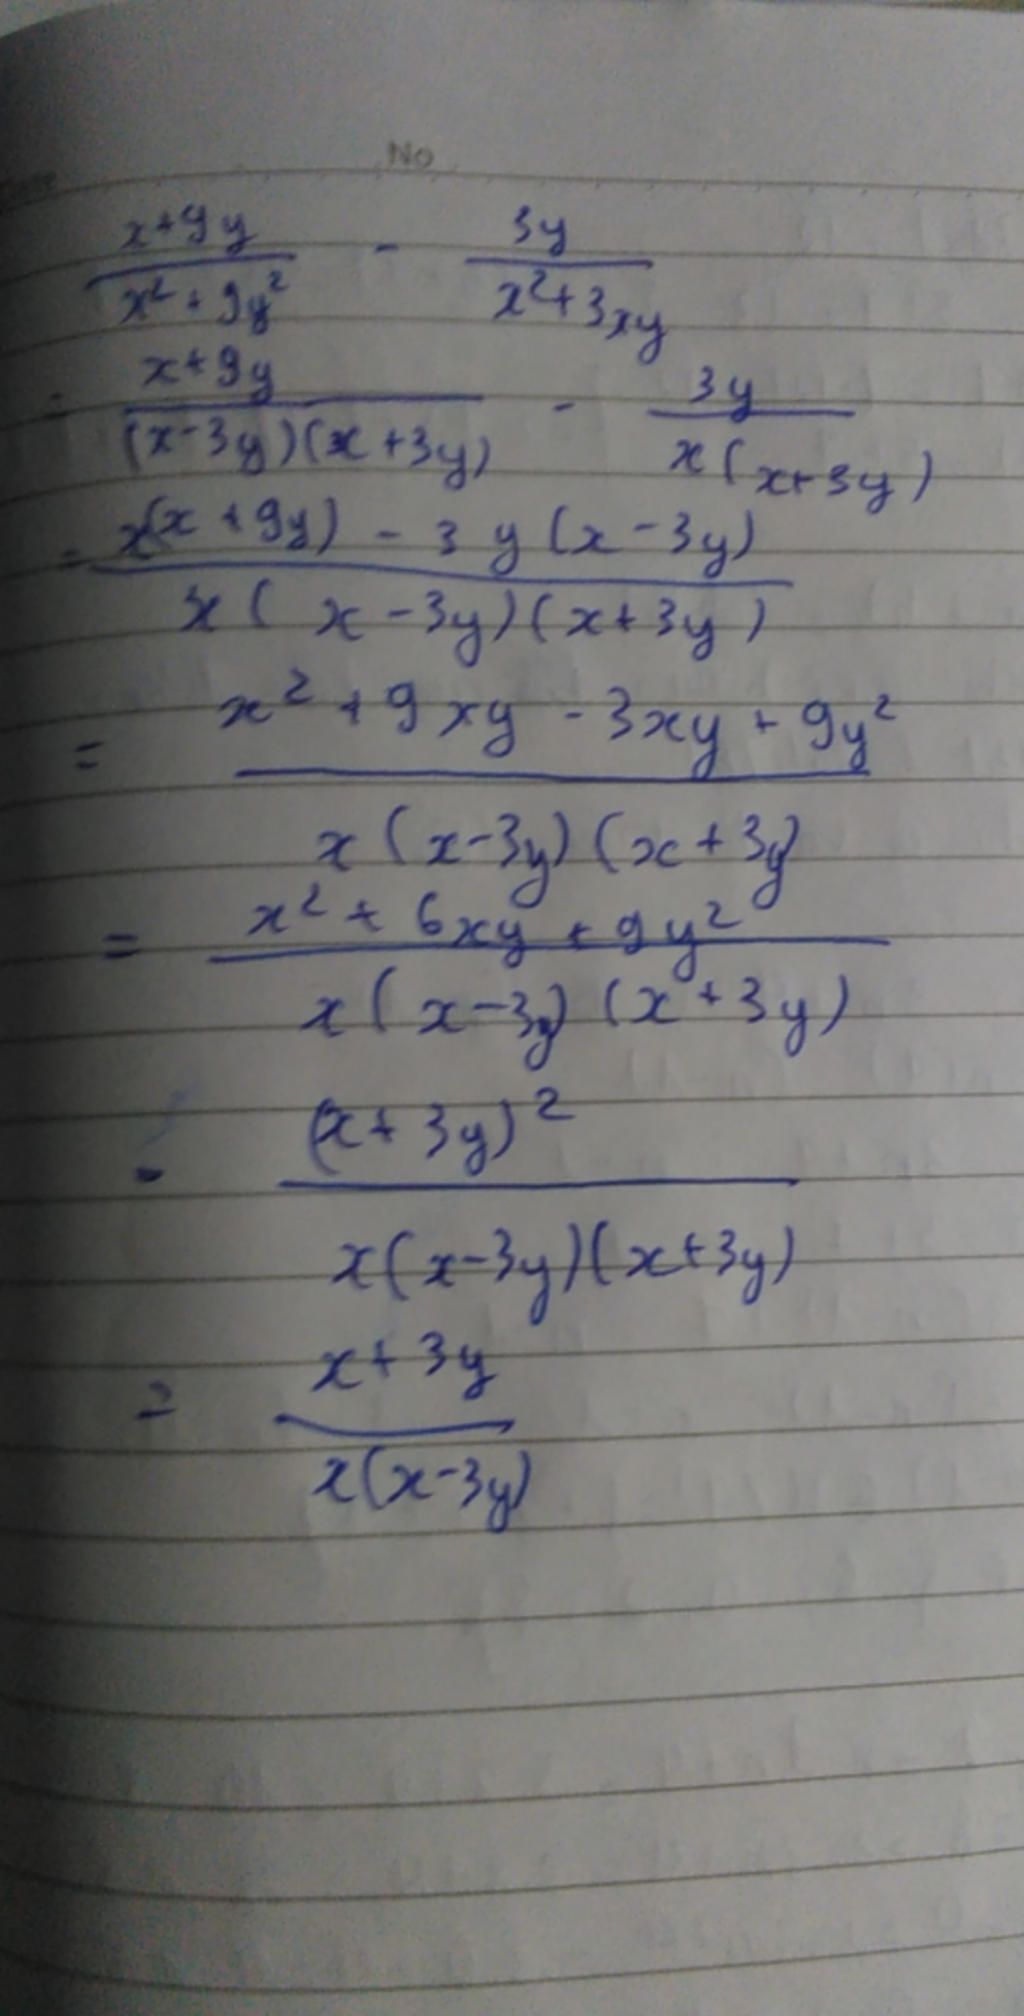 No
x+9y / x² + 9y² - 3y / x²+3xy
= x+9y / (x-3y)(x+3y) - 3y / x(x+3y)
= x(x+9y) - 3y(x-3y) / x(x-3y)(x+3y)
= x² + 9xy - 3xy + 9y² / x(x-3y)(x+3y)
= x² + 6xy + 9y² / x(x-3y)(x+3y)
= (x+3y)² / x(x-3y)(x+3y)
= x+3y / x(x-3y)